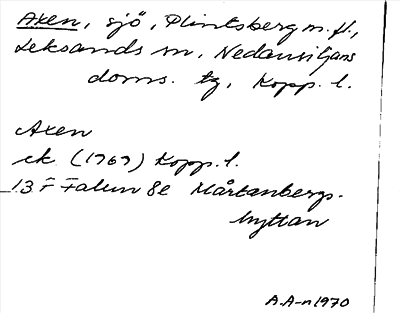 Axen, sjö, Plintsberg m. fl.,
Leksands sn, Nedansiljans
doms. tg, Kopp. l.
Axen
ek (1969) Kopp. l.
13 F Falun 8e Mårtanbergs-
hyttan
A.A-n 1970